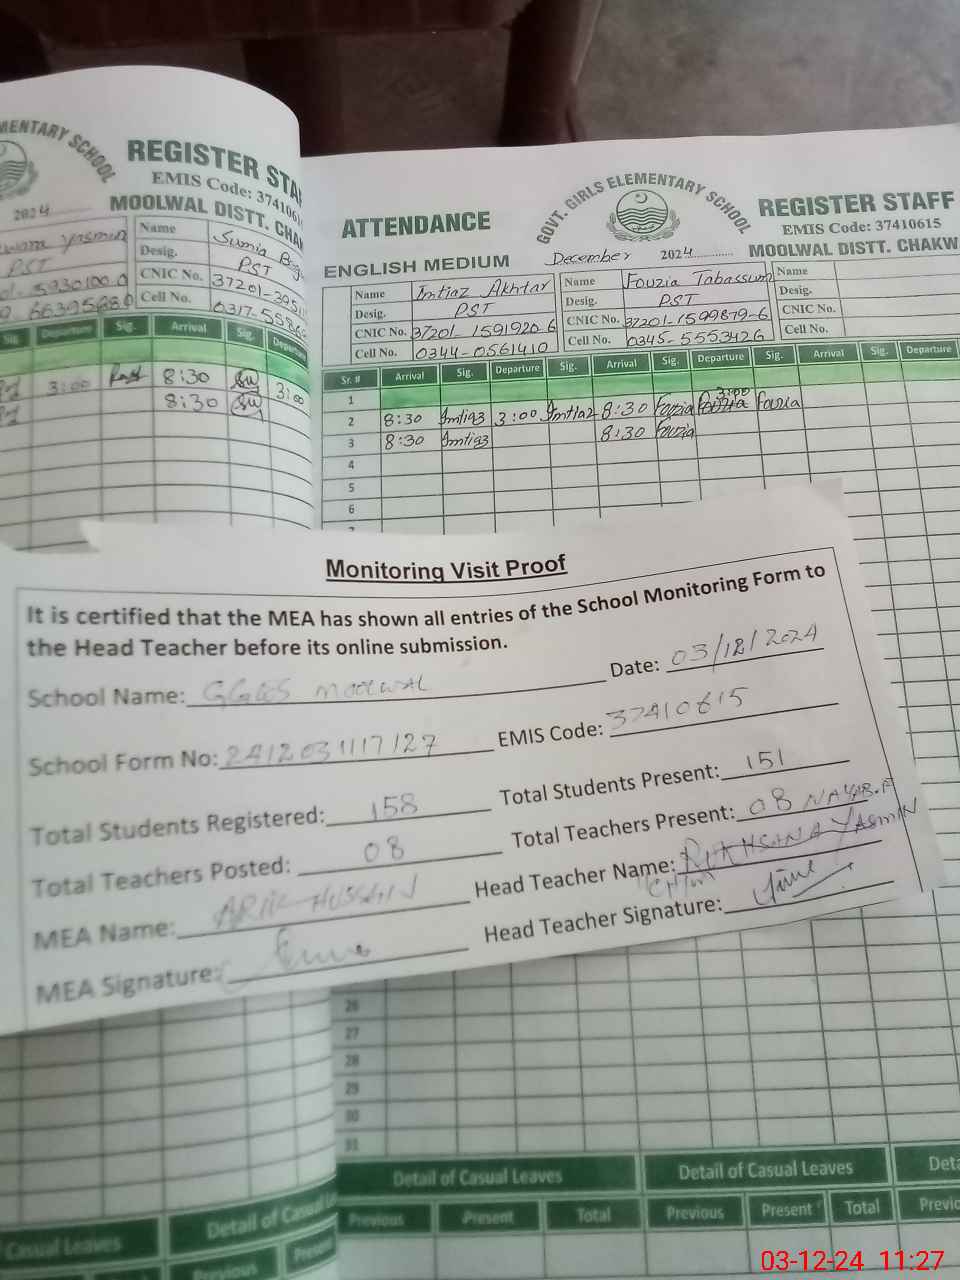 EMENTARY SCHOOL
REGISTER STA
EMIS Code: 3741061
2024
MOOLWAL DISTT. CHA
Yasmin
PST
Name Sumia
Desig. PST
CNIC No. 37201-395
Cell No. 0317-558
Departure Sig. Arrival Sig. Departure
3:00 8:30 3:00
8:30
ATTENDANCE
GOVT. GIRLS ELEMENTARY SCHOOL
REGISTER STAFF
EMIS Code: 37410615
ENGLISH MEDIUM
December 2024
MOOLWAL DISTT. CHAKW
Name Imtiaz Akhtar
Desig. PST
CNIC No. 37201-1591920-6
Cell No. 0344-0561410
Name Fouzia Tabassum
Desig. PST
CNIC No. 37201-1599879-6
Cell No. 0345-5553426
Name
Desig.
CNIC No.
Cell No.
Sr. # Arrival Sig. Departure Sig. Arrival Sig. Departure Sig. Arrival Sig. Departure
1
2 8:30 Imtiaz 3:00 Imtiaz 8:30 Fouzia 3:00 Fouzia
3 8:30 Imtiaz 8:30 Fouzia
4
5
6
Monitoring Visit Proof
It is certified that the MEA has shown all entries of the School Monitoring Form to
the Head Teacher before its online submission.
School Name: GGES MOOLWAL Date: 03/12/2024
School Form No: 2412031117127 EMIS Code: 37410615
Total Students Registered: 158 Total Students Present: 151
Total Teachers Posted: 08 Total Teachers Present: 08 NAYAB.F
MEA Name: HUSSAIN Head Teacher Name: RUKHSANA YASMIN
MEA Signature: Head Teacher Signature:
26
27
28
29
30
31
Casual Leaves Detail of Casual Le
Previous Present
Detail of Casual Leaves Detail of Casual Leaves Deta
Previous Present Total Previous Present Total Previo
03-12-24 11:27